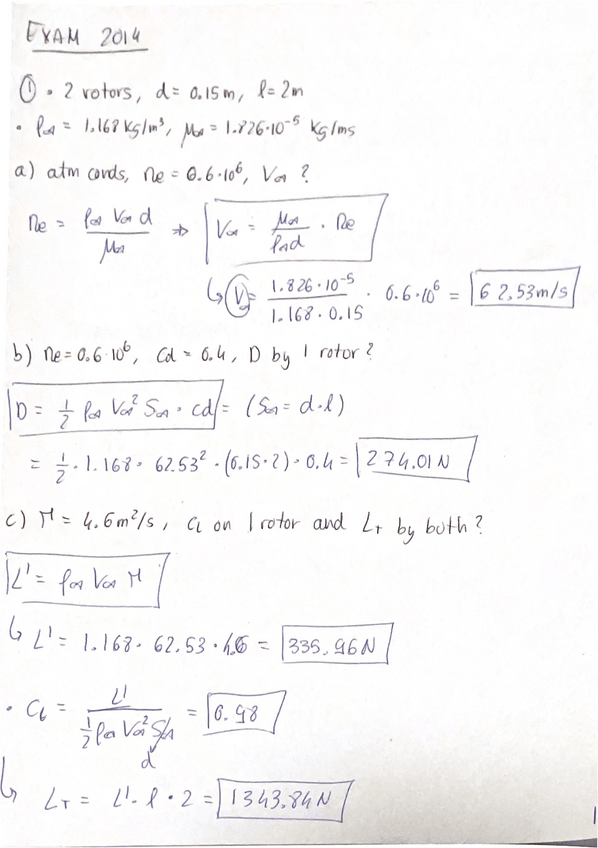 EXAM 2014
① • 2 rotors, d = 0.15m, l = 2m
• ρ∞ = 1.168 kg/m³, μ∞ = 1.826·10⁻⁵ kg/ms
a) atm conds, Re = 0.6·10⁶, V∞ ?
Re = ρ∞ V∞ d / μ∞ ⇒ V∞ = μ∞ / ρ∞d · Re
↳ V∞ = 1.826·10⁻⁵ / 1.168·0.15 · 0.6·10⁶ = 62.53m/s
b) Re = 0.6·10⁶, Cd = 0.4, D by 1 rotor?
D = 1/2 ρ∞ V∞² S∞ · cd = (S∞ = d·l)
= 1/2 · 1.168 · 62.53² · (0.15·2) · 0.4 = 274.01 N
c) Γ = 4.6m²/s, CL on 1 rotor and LT by both?
L' = ρ∞ V∞ Γ
↳ L' = 1.168 · 62.53 · 4.6 = 335.96N
• CL = L' / 1/2 ρ∞ V∞² d = 0.98
↳ LT = L' · l · 2 = 1343.84N